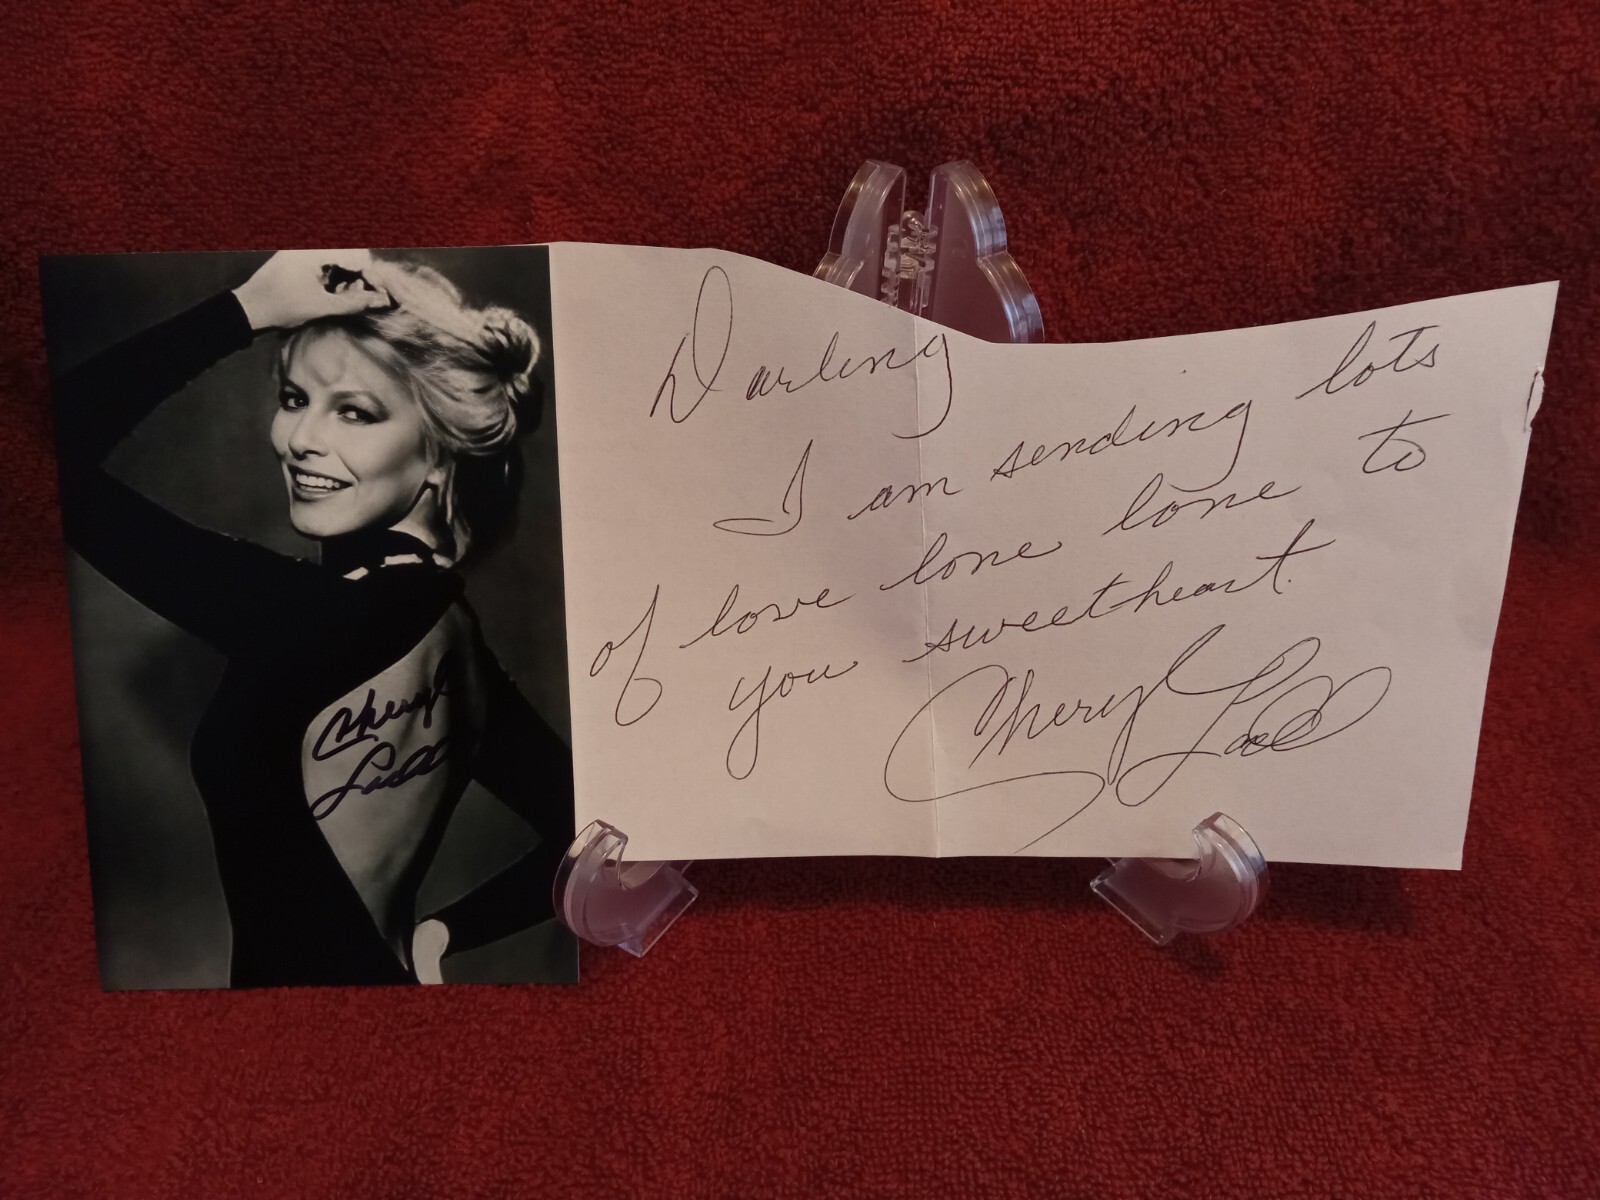 Cheryl
Ladd
Darling
I am sending lots
of love love love to
you sweetheart.
Cheryl Ladd